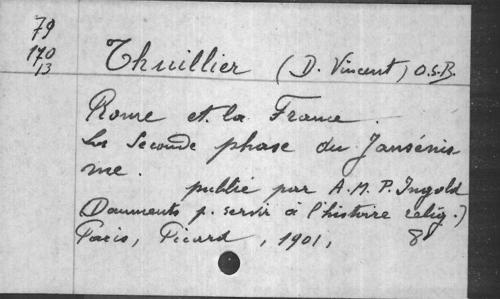 79
170
13
Thuillier (D. Vincent) O.S.B.
Rome et la France.
La Seconde phase du Jansénis
me.
publié par A.M.P. Ingold
(Documents p. servir à l'histoire relig.)
Paris, Picard, 1901, 8°